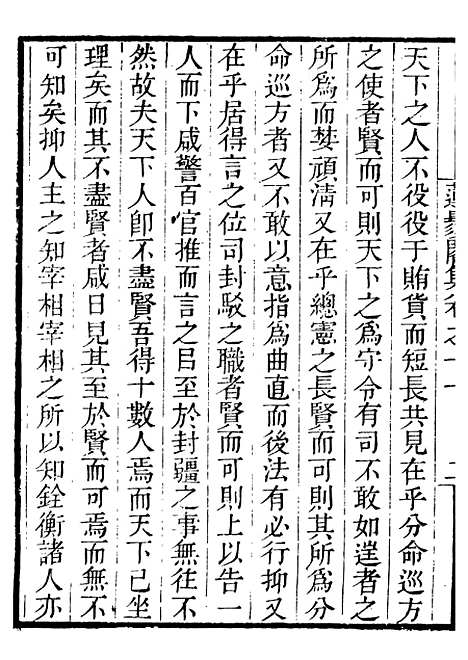 天下之人不役役于賄貨而短長共見在乎分命巡方
之使者賢而可則天下之為守令有司不敢如逞者之
所為而婪頑清又在乎總憲之長賢而可則其所為分
命巡方者又不敢以意指為曲直而後法有必行抑又
在乎居得言之位司封駁之職者賢而可則上以告一
人而下咸警百官推而言之呂至於封疆之事無徃不
然故夫天下人卽不盡賢吾得十數人焉而天下已坐
理矣而其不盡賢者咸日見其至於賢而可焉而無不
可知矣抑人主之知宰相宰相之所以知銓衡諸人亦